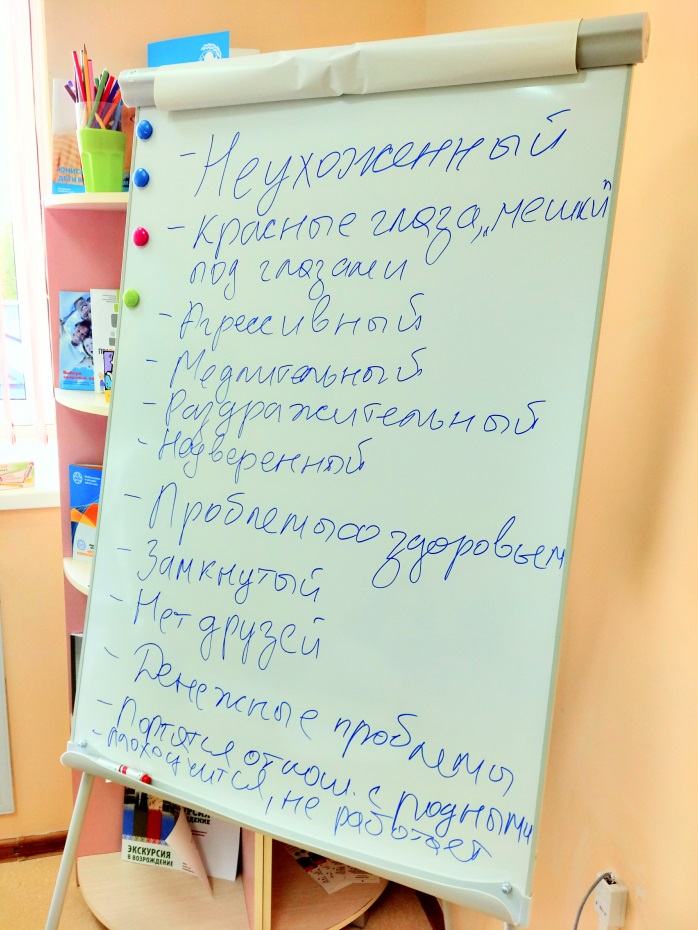 - Неухоженный
- Красные глаза, „мешки"
под глазами
- Агрессивный
- Медлительный
- Раздражительный
- Надверенный
- Проблемы со здоровьем
- Замкнутый
- Нет друзей
- Денежные проблемы
- Портятся отнош. с родными
- плохо учится, не работает
ЭКСКУРСИЯ
В ВОЗРОЖДЕНИЕ